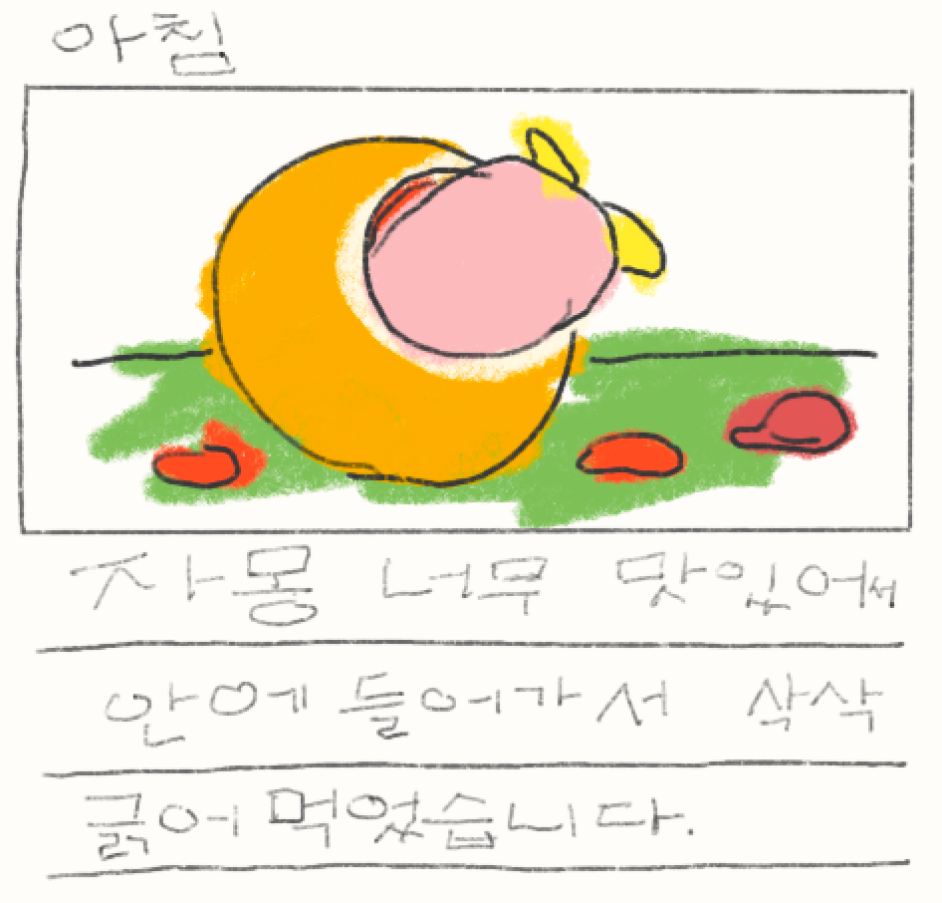 아침
자몽 너무 맛있어서
안에 들어가서 삭삭
긁어 먹었습니다.